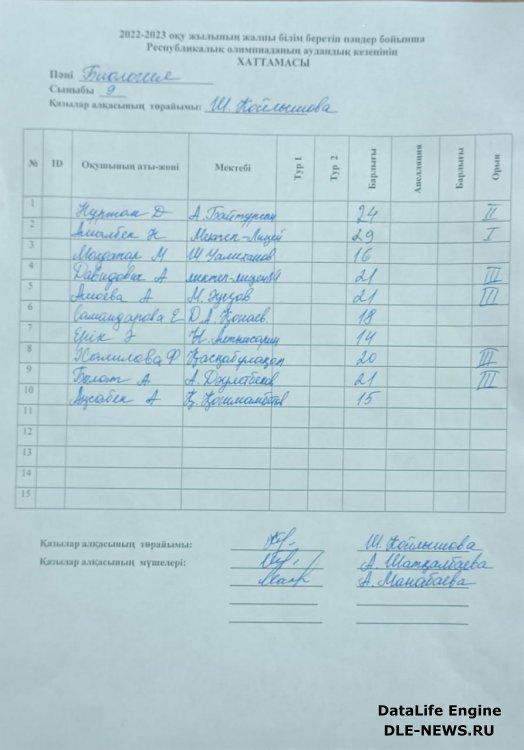 2022-2023 оқу жылының жалпы білім беретін пәндер бойынша
Республикалық олимпиаданың аудандық кезеңінің
ХАТТАМАСЫ
Пәні Биология
Сыныбы 9
Қазылар алқасының төрайымы: Ш. Қойлышова
№ ID Оқушының аты-жөні Мектебі Тур 1 Тур 2 Барлығы Апелляция Барлығы Орын
1 Нұржан Д А. Байтұрсын 24 II
2 Н Мектеп-Лицей 29 I
3 М Ш Уалиханов 16
4 Давидович А мектеп-лицей 21 III
5 А М. Әуезов 21 III
6 Самандарова Е Д.А. Қонаев 18
7 Ерік Ә Ы. Алтынсарин 14
8 Халилова Ф Қасқабұлақ 20 III
9 Болат А А. Дәулетбеков 21 III
10 Ақсабек А Қ. 15
11
12
13
14
15
Қазылар алқасының төрайымы: Ш. Қойлышова
Қазылар алқасының мүшелері: А. Шатқалбаева
А. Манабаева
DataLife Engine
DLE-NEWS.RU